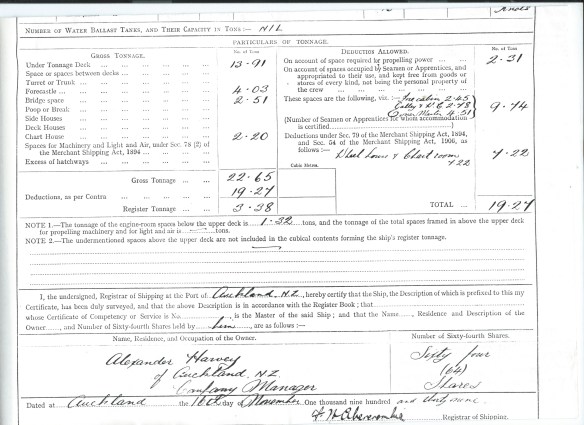 Knots
NUMBER OF WATER BALLAST TANKS, AND THEIR CAPACITY IN TONS:— NIL
PARTICULARS OF TONNAGE.
GROSS TONNAGE. No. of Tons
Under Tonnage Deck ... 13.91
Space or spaces between decks ...
Turret or Trunk ...
Forecastle ... 4.03
Bridge space ... 2.51
Poop or Break ...
Side Houses ...
Deck Houses ...
Chart House ... 2.20
Spaces for Machinery and Light and Air, under Sec. 78 (2) of
the Merchant Shipping Act, 1894 ...
Excess of hatchways ...
Gross Tonnage ... 22.65
Deductions, as per Contra ... 19.27
Register Tonnage ... 3.38
DEDUCTION ALLOWED. No. of Tons
On account of space required for propelling power ... 2.31
On account of spaces occupied by Seamen or Apprentices, and
appropriated to their use, and kept free from goods or
stores of every kind, not being the personal property of
the crew ...
These spaces are the following, viz. :— 2.45
Galley & W.C. 2.78 9.74
4.51
(Number of Seamen or Apprentices for whom accommodation
is certified)
Deductions under Sec. 79 of the Merchant Shipping Act, 1894,
and Sec. 54 of the Merchant Shipping Act, 1906, as
follows :— Wheel house & Chart room 7.22
Cubic Metres. 7.22
TOTAL ... 19.27
NOTE 1.—The tonnage of the engine-room spaces below the upper deck is 1.32 tons, and the tonnage of the total spaces framed in above the upper deck
for propelling machinery and for light and air is — tons.
NOTE 2.—The undermentioned spaces above the upper deck are not included in the cubical contents forming the ship's register tonnage.
I, the undersigned, Registrar of Shipping at the Port of Auckland. N.Z., hereby certify that the Ship, the Description of which is prefixed to this my
Certificate, has been duly surveyed, and that the above Description is in accordance with the Register Book ; that
whose Certificate of Competency or Service is No. , is the Master of the said Ship ; and that the Name , Residence and Description of the
Owner , and Number of Sixty-fourth Shares held by him , are as follows :—
Name, Residence, and Occupation of the Owner. Number of Sixty-fourth Shares.
Alexander Harvey Sixty four
of Auckland, N.Z. (64)
Company Manager Shares
Dated at Auckland the 16th day of November One thousand nine hundred and thirty one.
Registrar of Shipping.